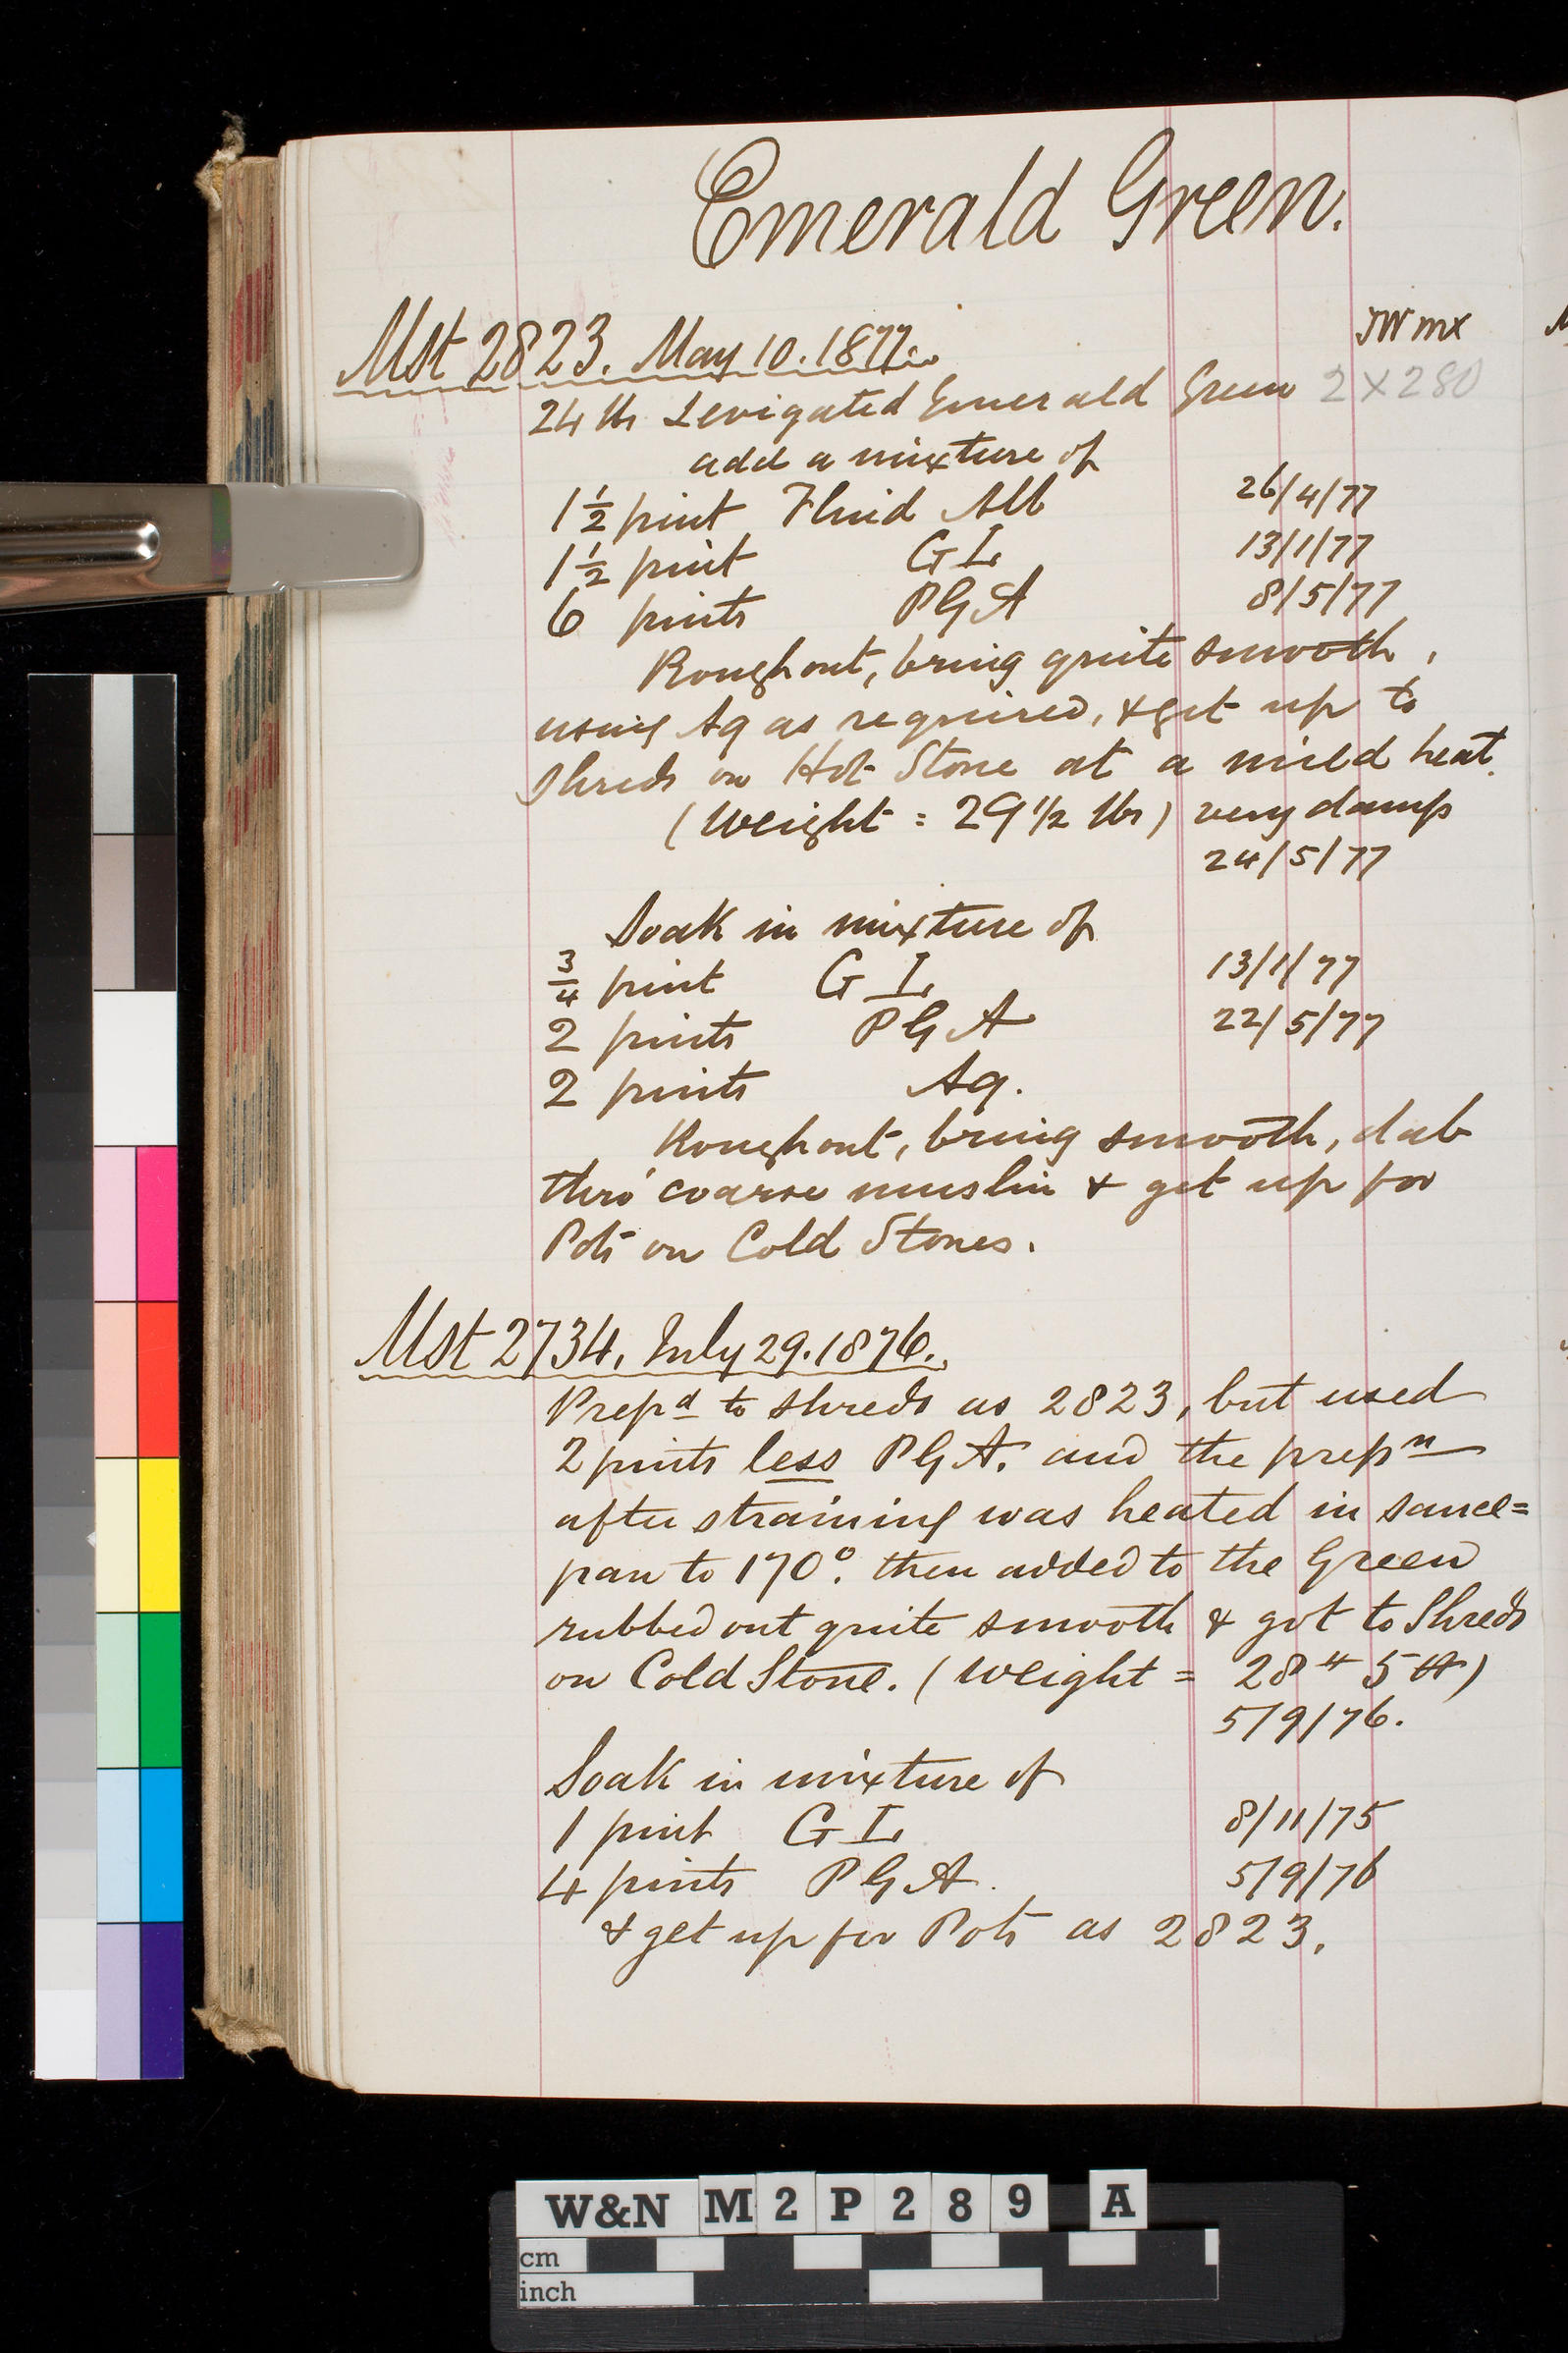 Emerald Green.
Mst 2823. May 10. 1877.
JW mx
24 lbs Levigated Emerald Green 2 X 280
add a mixture of
1 1/2 pint Fluid Alb 26/4/77
1 1/2 pint GL 13/1/77
6 pints PGA 8/5/77
Rough out, bring quite smooth,
using Aq as required, & get up to
Shreds on Hot Stone at a mild heat.
(Weight = 29 1/2 lbs) very damp
24/5/77
Soak in mixture of
3/4 pint GL 13/1/77
2 pints PGA 22/5/77
2 pints Aq.
Rough out, bring smooth, dab
thro' coarse muslin & get up for
Pots on Cold Stones.
Mst 2734. July 29. 1876.
Prepd to shreds as 2823, but used
2 pints less PGA. and the prepn
after straining was heated in sauce=
pan to 170°. then added to the Green
rubbed out quite smooth & got to Shreds
on Cold Stone. (Weight = 28 " 5
5/9/76.
Soak in mixture of
1 pint GL 8/11/75
4 pints PGA. 5/9/76
& get up for Pots as 2823.
W&N M2P289 A
cm
inch